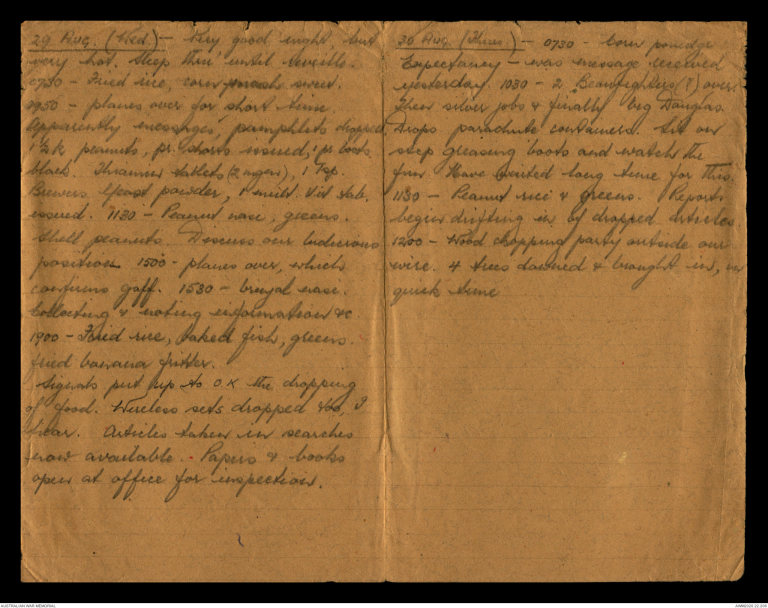 29 Aug. (Wed.) - Very good night, but
very hot. Sleep thru' until reveille.
0730 - Fried rice, corn mash sweet.
0950 - planes over for short time.
Apparently messages, pamphlets dropped.
1½k peanuts, pr. shorts issued, 1 pr boots
black. Tablets (2 ), 1 Tsp.
Brewers Yeast powder, 1 multi. Vit tab.
issued. 1130 - Peanut rice, greens.
Shell peanuts. Discuss our ludicrous
position. 1500 - planes over, which
confirms gaff. 1530 - brinjal rice.
Collecting & noting information &c
1900 - Fried rice, baked fish, greens.
fried banana fritter.
Signals put up to O.K the dropping
of food. Wireless sets dropped too, I
hear. Articles taken in searches
now available. - Papers & books
open at office for inspection.
30 Aug. (Thurs.) - 0730 - Corn porridge
Expectancy - was message received
yesterday. 1030 - 2 Beaufighters(?) over.
Then silver jobs & finally big Douglas
drops parachute containers. Sit on
step greasing boots and watch the
fun. Have waited long time for this.
1130 - Peanut rice & greens. Reports
begin drifting in of dropped articles.
1200 - Wood chopping party outside our
wire. 4 trees downed & brought in, in
quick time
AUSTRALIAN WAR MEMORIAL